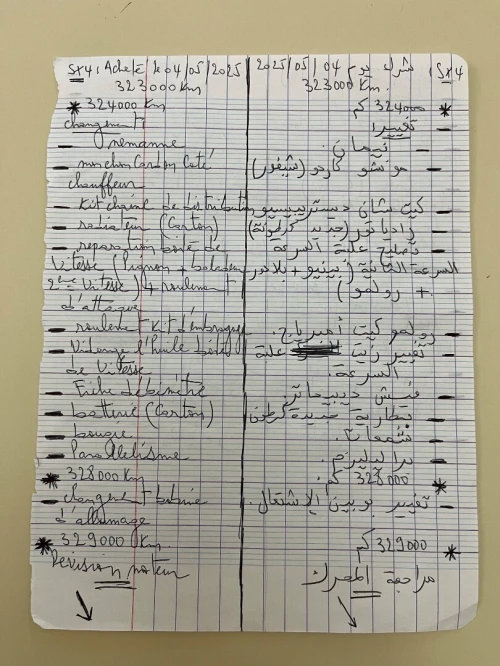 SX4, Acheté le 04/05/2025
323000 Km
* 324000 Km
changement
— Jemanne
— manchon Cardon Coté
chauffeur
— Kit chaîne de distribution
— radiateur (Carton)
— reparation boite de
vitesse (Pignon + baladeur
2ème vitesse) + roulement
d'attaque
— roulement Kit d'embrayage
— Vidange l'huile boite
de vitesse
— Fiche débimétre
— batterie (Carton)
— bougie
— Parallelisme
* 328000 Km
— changement bobine
d'allumage
* 329000 Km
Révision moteur
SX4, شرك يوم 04/05/2025
323000 Km.
* 324000 كم
تغيير
— مونشو كاردو (شيفور)
— كيت شان ديستريبيسيو
— رادياتور (جديد كرطونة)
— تصليح علبة السرعة
السرعة الثانية (بينيو + بلادور
+ رولمو)
— رولمو كيت أمبرياج.
— تغيير زيت علبة
السرعة.
— فيش ديبيماتر
— بطارية جديدة كرطون
— شمعات.
— براليليزم.
* 328000 كم
— تغيير بوبين الاشتعال.
* 329000 كم
مراجعة المحرك